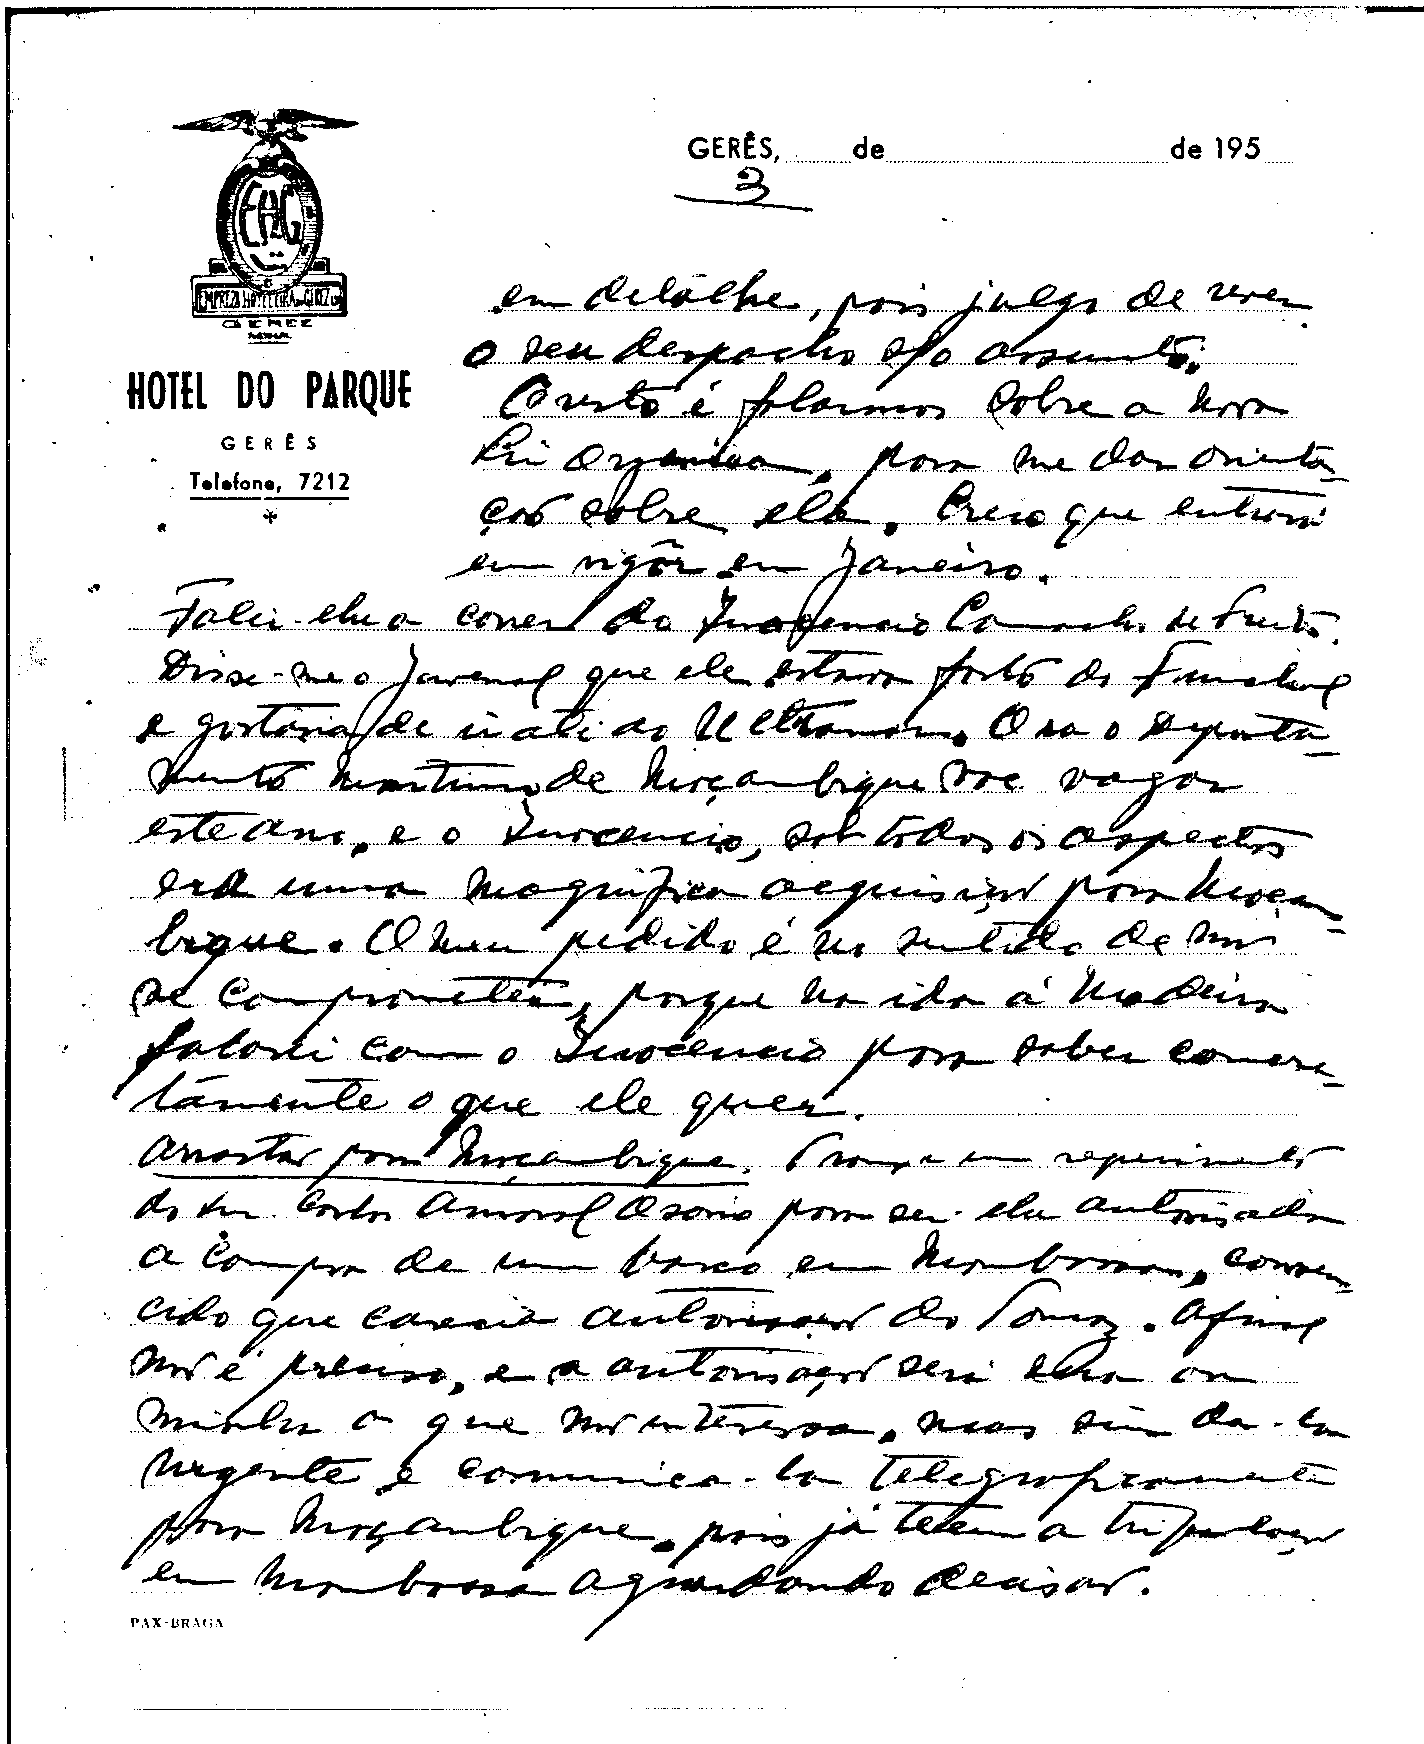 GERÊS, de de 195
3
EHG
EMPREZA HOTELEIRA DO GEREZ
GEREZ
HOTEL DO PARQUE
GERÊS
Telefone, 7212
em detalhe, pois julgo de ver em
o seu despacho s/o assunto.
O resto é falarmos sobre a nova
Lei Organica, para me dar orienta-
ção sobre ela. Creio que entrará
em vigôr em Janeiro.
Falei-lhe a correr do Inocencio Camacho de Freitas.
Disse-me o Juvenal que ele estava farto do Funchal
e gostaria de ir ali ao Ultramar. Ora o Departa-
mento Maritimo de Moçambique vae vagar
este ano, e o Inocencio, sob todos os aspectos
era uma magnifica acquisição para Moçam-
bique. O meu pedido é no sentido de não
se comprometer, porque na ida á Madeira
falarei com o Inocencio para saber concre-
tamente o que ele quer.
Arrastar para Moçambique. um requerimento
do sr. Carlos Amaral Osorio para ser-lhe autorisada
a compra de um barco em Mombassa, conven-
cido que carecia autorisação do . Afinal
não é preciso, e a autorisação será sua ou
minha o que não interessa, mas sim da-la
urgente e comunica-la telegraficamente
para Moçambique, pois já teem a tripulação
em Mombassa aguardando decisão.
PAX-BRAGA